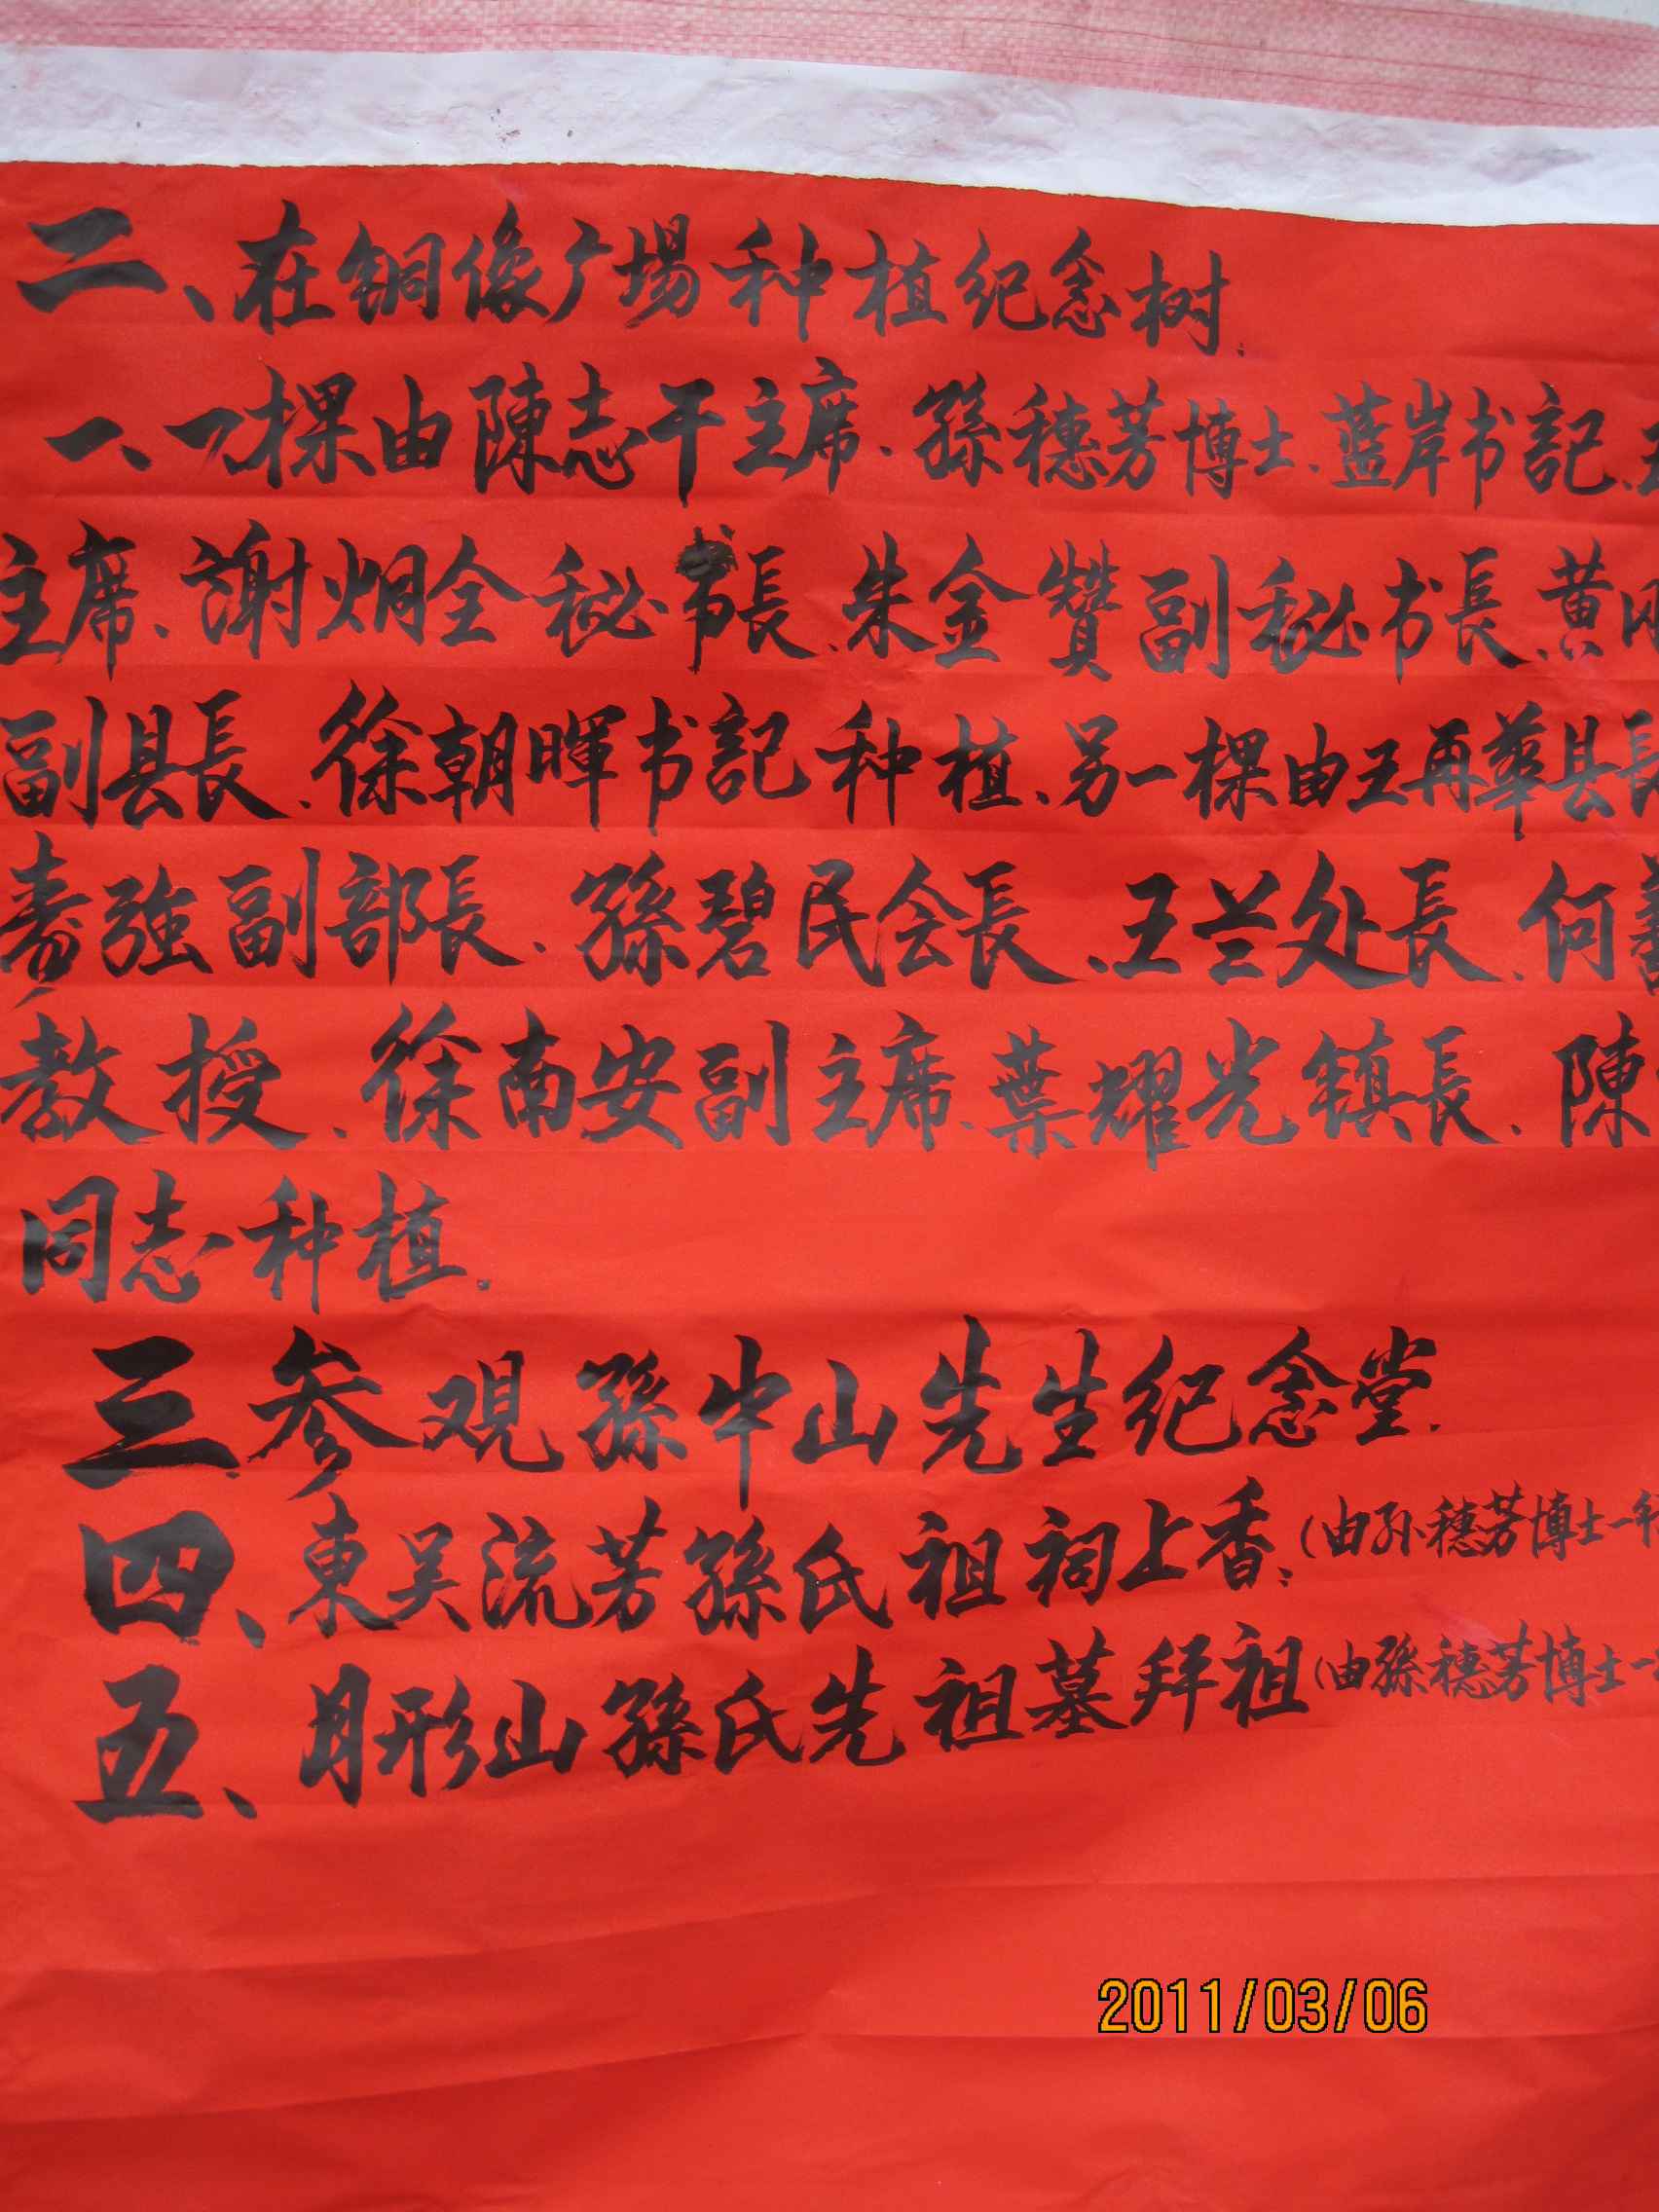 二、在铜像广場种植纪念树:
一、一棵由陳志干主席.孫穗芳博士.蓝岸书記.
主席.謝炯全秘书長.朱金贊副秘书長.黄
副县長.徐朝暉书記种植.另一棵由王再華县長
寿強副部長.孫碧民会長.王兰处長.何
教授.徐南安副主席.葉耀光镇長.陳
同志种植.
三.参观孫中山先生纪念堂.
四、東吴流芳孫氏祖祠上香:(由孙穗芳博士一行
五、月形山孫氏先祖墓拜祖(由孫穗芳博士一
2011/03/06